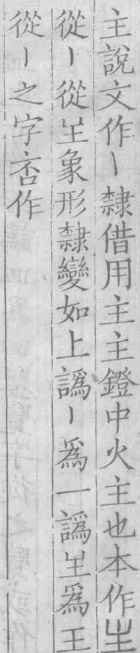 主說文作丨隸借用主主鐙中火主也本作𡉚
從丨從𡉚象形隸變如上譌丨爲一譌𡉚爲王
從丨之字杏作